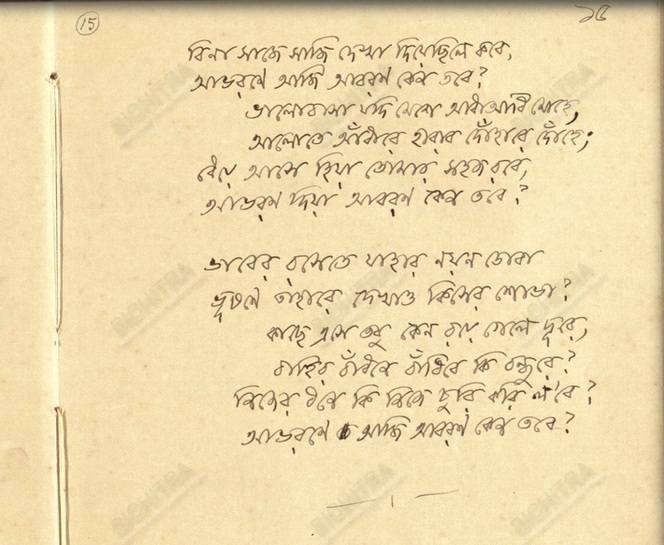 15
১৫
বিনা সাজে সাজি দেখা দিয়েছিলে কবে,
আভরণে আজি আবরণ কেন তবে?
ভালোবাসা যদি মেশে আধাআধি মোহে,
আলোতে আঁধারে হারাব দোঁহারে দোঁহে;
ধেয়ে আসে হিয়া তোমার সহজ রবে,
আভরণ দিয়া আবরণ কেন তবে?
ভাবের রসেতে যাহার নয়ন ডোবা
ভূষণে তাহারে দেখাও কিসের শোভা?
কাছে এসে তবু কেন রয়ে গেলে দূরে,
বাহির বাঁধনে বাঁধিবে কি বন্ধুরে?
নিজের ধনে কি নিজে চুরি করি ল'বে?
আভরণে আজি আবরণ কেন তবে?
BICHITRA